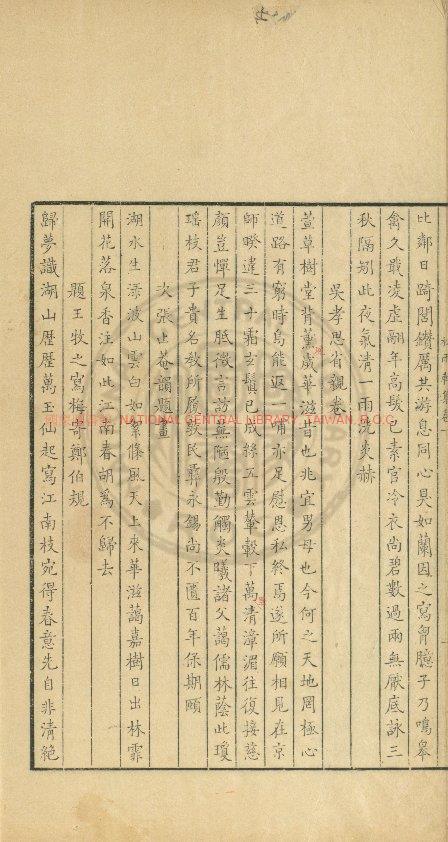 比鄰日踦閣鑽厲共游息同心臭如蘭因之寫胷臆子乃鳴皋
禽久戢凌虛翮年高鬂已素官冷衣尚碧數過兩無厭底詠三
秋隔矧此夜氣清一雨洗炎赫
吳孝思省覲卷
萱草樹堂背薰歲華滋昔也兆宜男母也今何之天地罔極心
道路有窮時烏能返一哺亦足慰思私終焉遂所願相見在京
師暌違三十霜玄鬢已成絲五雲輦轂下萬清漳湄往復接慈
顏豈憚足生胝微言訪無陋殷勤觸炎曦諸父藹儒林蔭此瓊
瑤枝君子貴名教所屬敦民彞永錫尚不匱百年保期頤
次張止菴韻題畫
湖水生添波山雲白如絮條風天上來華滋藹嘉樹日出林霏
開花落泉香注如此江南春胡為不歸去
題王牧之寫梅寄鄭伯規
歸夢識湖山歷歷萬玉仙起寫江南枝宛得春意先自非清絕
NATIONAL CENTRAL LIBRARY, TAIWAN, R.O.C.